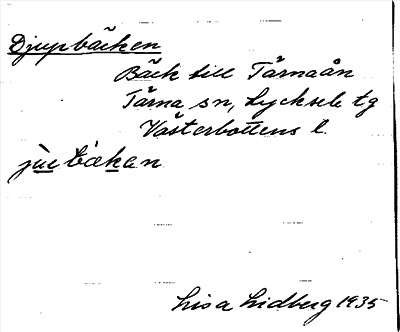 Djupbäcken
Bäck till Tärnaån
Tärna sn, Lycksele tg
Västerbottens l.
Lisa Lidberg 1935